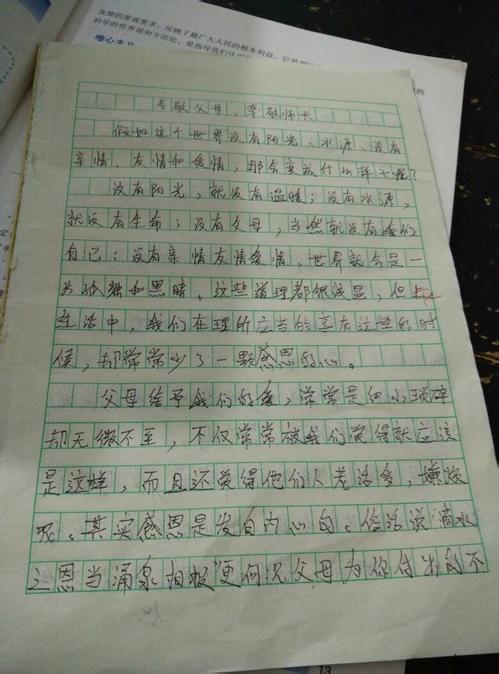 发展的客观要求，反映了最广大人民的根本利益，
科学的世界观和方法论，是指导我们认
唯心主义
孝敬父母、尊敬师长
假如这个世界没有阳光、水源、没有
亲情、友情和爱情，那会变成什么样子呢？
没有阳光，就没有温暖；没有水源，
就没有生命；没有父母，当然就没有我们
自己；没有亲情友情爱情，世界就会是一
片孤独和黑暗。这些道理都很浅显，但
生活中，我们在理所应当的享有这些的时
候，却常常少了一颗感恩的心。
父母给予我们的爱，常常是细小琐碎
却无微不至，不仅常常被我们觉得就应该
是这样，而且还觉得他们人老话多，嫌烦
呢。其实感恩是发自内心的。俗话说“滴水
之恩当涌泉相报”更何况父母为你付出的不
13